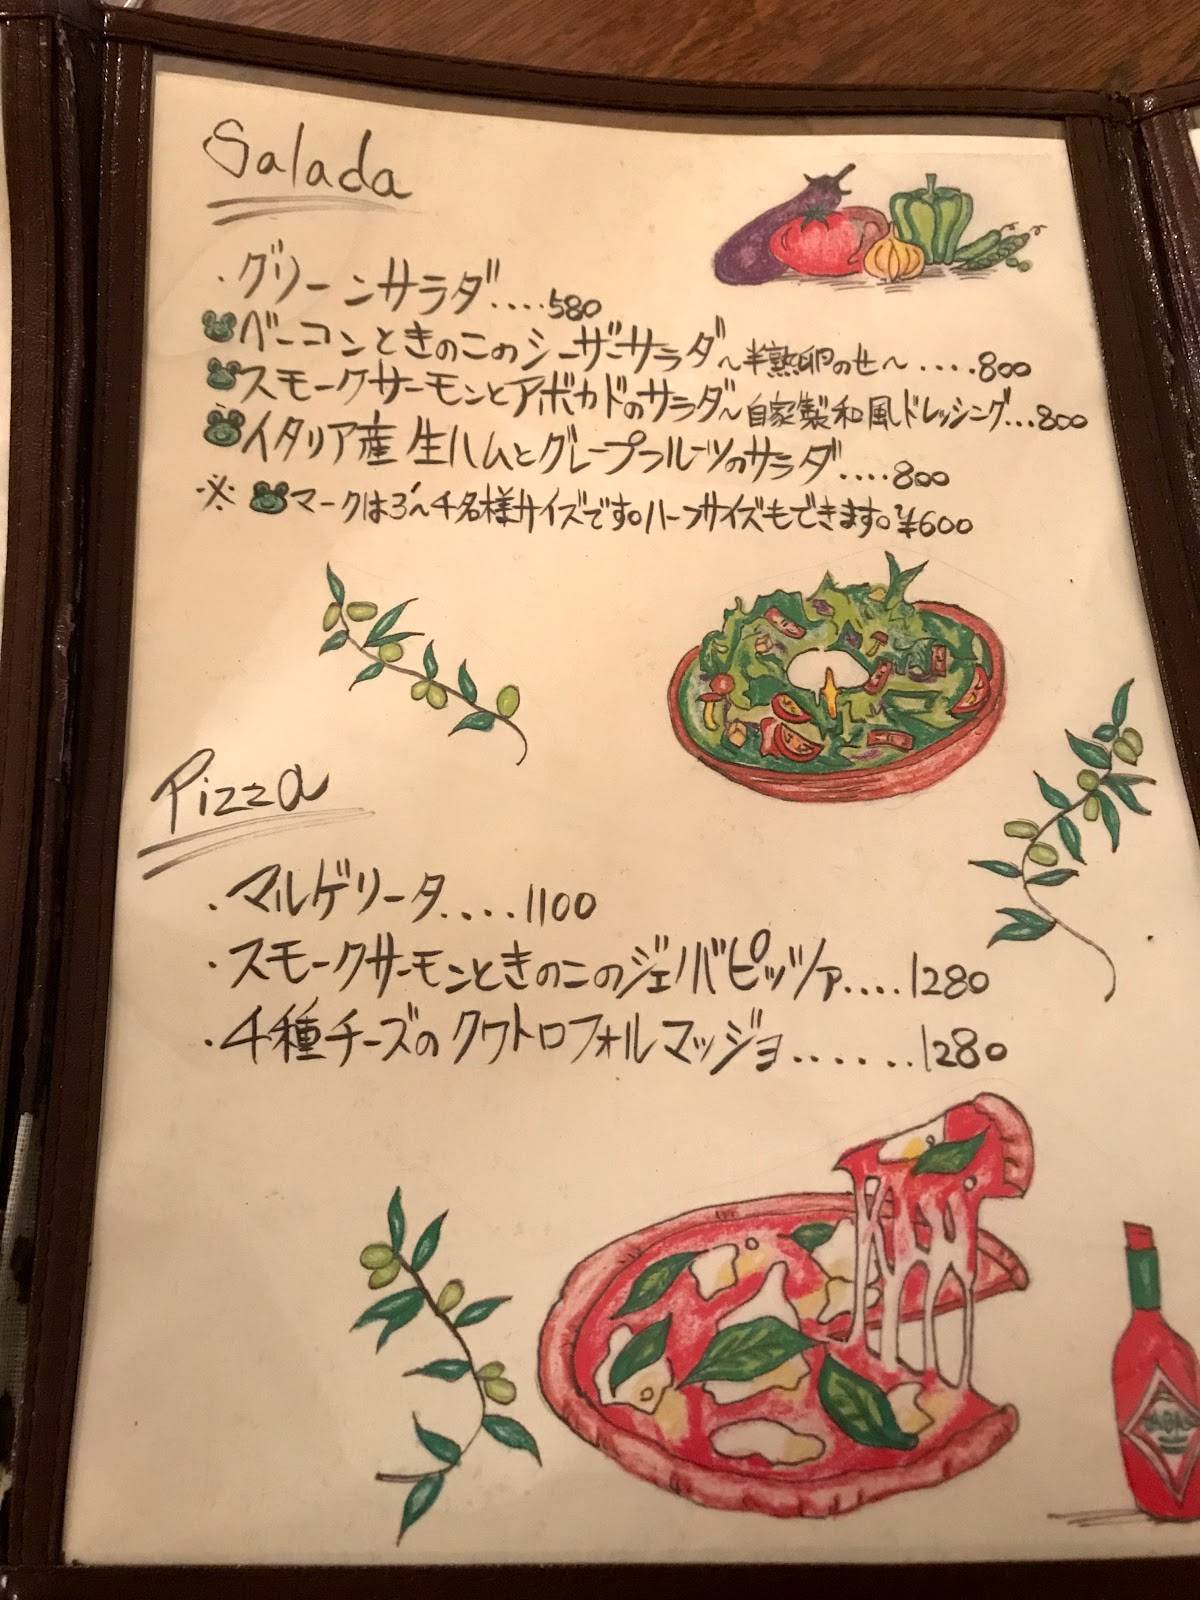 Salada
・グリーンサラダ....580
ベーコンときのこのシーザーサラダ～半熟卵のせ～....800
スモークサーモンとアボカドのサラダ～自家製和風ドレッシング...800
イタリア産生ハムとグレープフルーツのサラダ....800
※マークは3～4名様サイズです。ハーフサイズもできます。¥600
Pizza
・マルゲリータ....1100
・スモークサーモンときのこのジェノバピッツァ....1280
・4種チーズのクワトロフォルマッジョ......1280